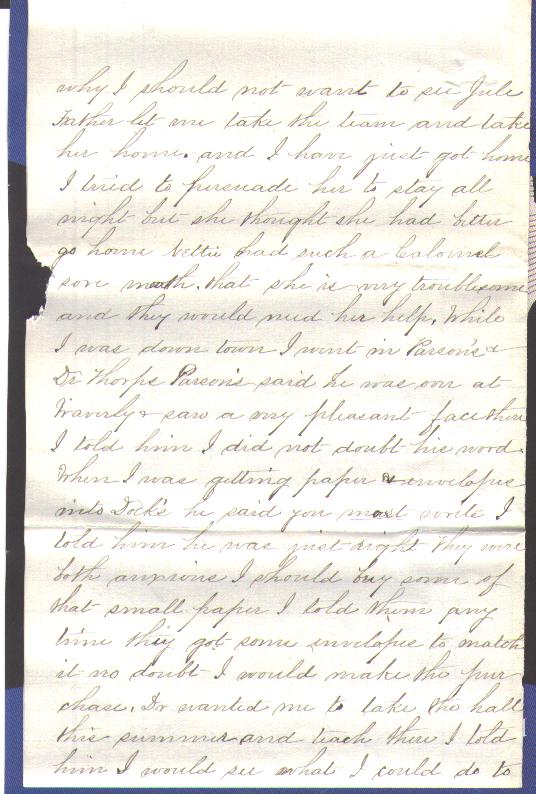 why I should not want to see Jule
Father let me take the team and take
her home. and I have just got home
I tried to persuade her to stay all
night but she thought she had better
go home Nettie had such a Calomel
sore mouth. that she is very troublesome
and they would need her help. While
I was down town I went in Parson's &
Dr Thorps Parson's said he was over at
Waverly & saw a very pleasant face there
I told him I did not doubt his word.
When I was getting paper & envelopes
into Dock's he said you must write I
told him he was just right They were
both anxious I should buy some of
that small paper I told them any
time they got some envelopes to match
it no doubt I would make the pur
chase. Dr wanted me to take the hall
this summer and teach there I told
him I would see what I could do to